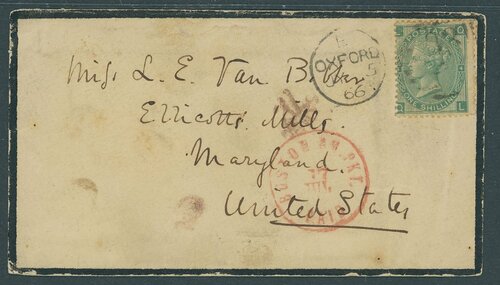 Miss L. E. Van B
Ellicotts Mills.
Maryland.
United States
OXFORD
66
BOSTON AM. PKT.
POSTAGE
ONE SHILLING